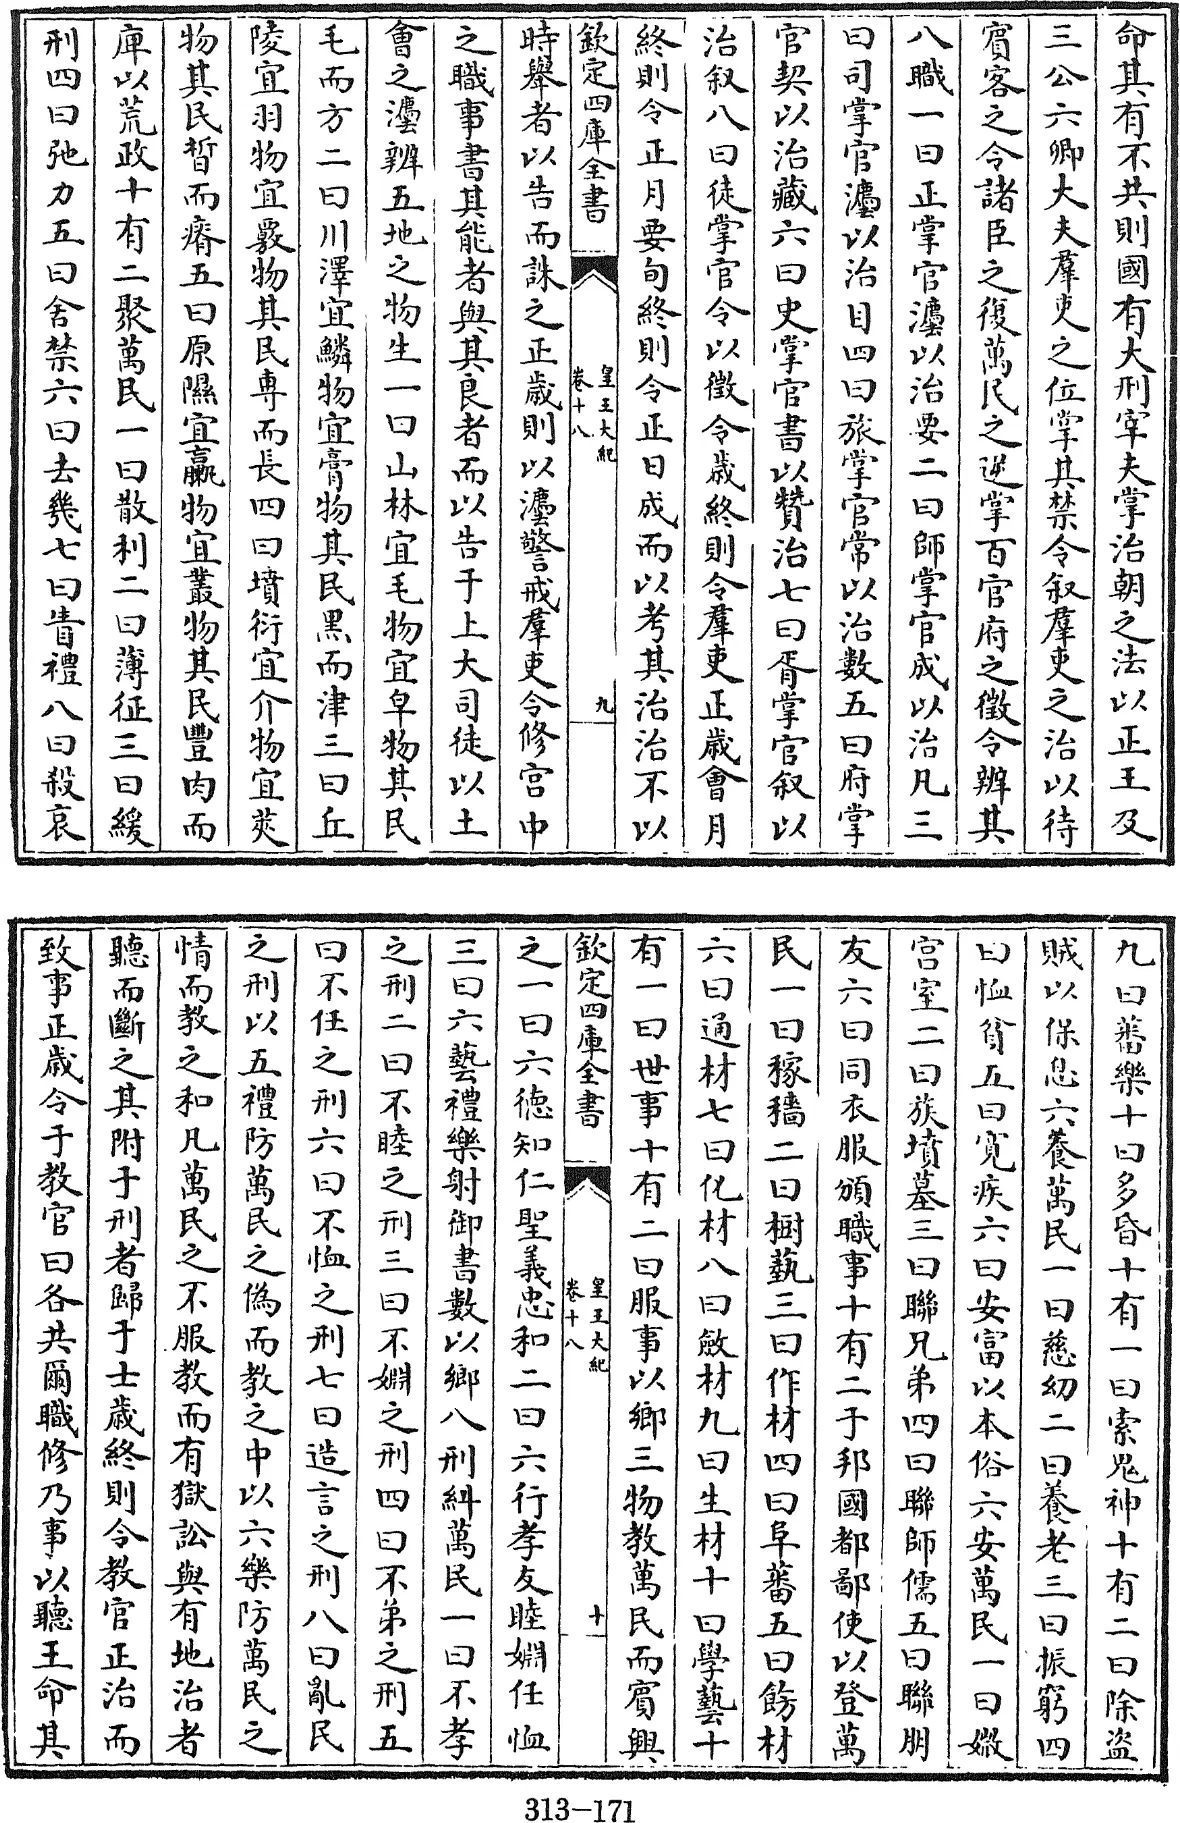 命其有不共則國有大刑宰夫掌治朝之法以正王及
三公六卿大夫羣吏之位掌其禁令叙羣吏之治以待
賔客之令諸臣之復萬民之逆掌百官府之徴令辨其
八職一曰正掌官灋以治要二曰師掌官成以治凡三
曰司掌官灋以治目四曰旅掌官常以治數五曰府掌
官契以治藏六曰史掌官書以贊治七曰胥掌官叙以
治叙八曰徒掌官令以徴令歳終則令羣吏正歳會月
終則令正月要旬終則令正日成而以考其治治不以
欽定四庫全書
皇王大紀
卷十八
九
時舉者以告而誅之正歳則以灋警戒羣吏令修宫中
之職事書其能者與其良者而以告于上大司徒以土
會之灋辨五地之物生一曰山林宜毛物宜皁物其民
毛而方二曰川澤宜鱗物宜膏物其民黒而津三曰丘
陵宜羽物宜覈物其民専而長四曰墳衍宜介物宜莢
物其民晳而瘠五曰原隰宜臝物宜叢物其民豐肉而
庳以荒政十有二聚萬民一曰散利二曰薄征三曰緩
刑四曰弛力五曰舍禁六曰去幾七曰眚禮八曰殺哀
九曰蕃樂十曰多昏十有一曰索鬼神十有二曰除盗
賊以保息六養萬民一曰慈幼二曰養老三曰振窮四
曰恤貧五曰寛疾六曰安富以本俗六安萬民一曰媺
宫室二曰族墳墓三曰聯兄弟四曰聯師儒五曰聯朋
友六曰同衣服頒職事十有二于邦國都鄙使以登萬
民一曰稼穡二曰樹蓺三曰作材四曰阜蕃五曰飭材
六曰通材七曰化材八曰斂材九曰生材十曰學藝十
有一曰世事十有二曰服事以鄉三物教萬民而賔興
欽定四庫全書
皇王大紀
卷十八
十
之一曰六徳知仁聖義忠和二曰六行孝友睦婣任恤
三曰六藝禮樂射御書數以鄉八刑糾萬民一曰不孝
之刑二曰不睦之刑三曰不婣之刑四曰不弟之刑五
曰不任之刑六曰不恤之刑七曰造言之刑八曰亂民
之刑以五禮防萬民之偽而教之中以六樂防萬民之
情而教之和凡萬民之不服教而有獄訟與有地治者
聽而斷之其附于刑者歸于士歳終則令教官正治而
致事正歳令于教官曰各共爾職修乃事以聽王命其
313-171